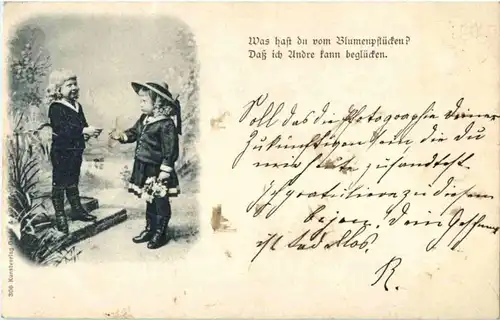 Was hast du vom Blumenpflücken?
Daß ich Andre kann beglücken.
Soll das die Photographie Deiner
Zukünftigen sein die du
mir heute zusandtest.
Ich gratuliere zu diesem
Dein
ist tadellos.
R.